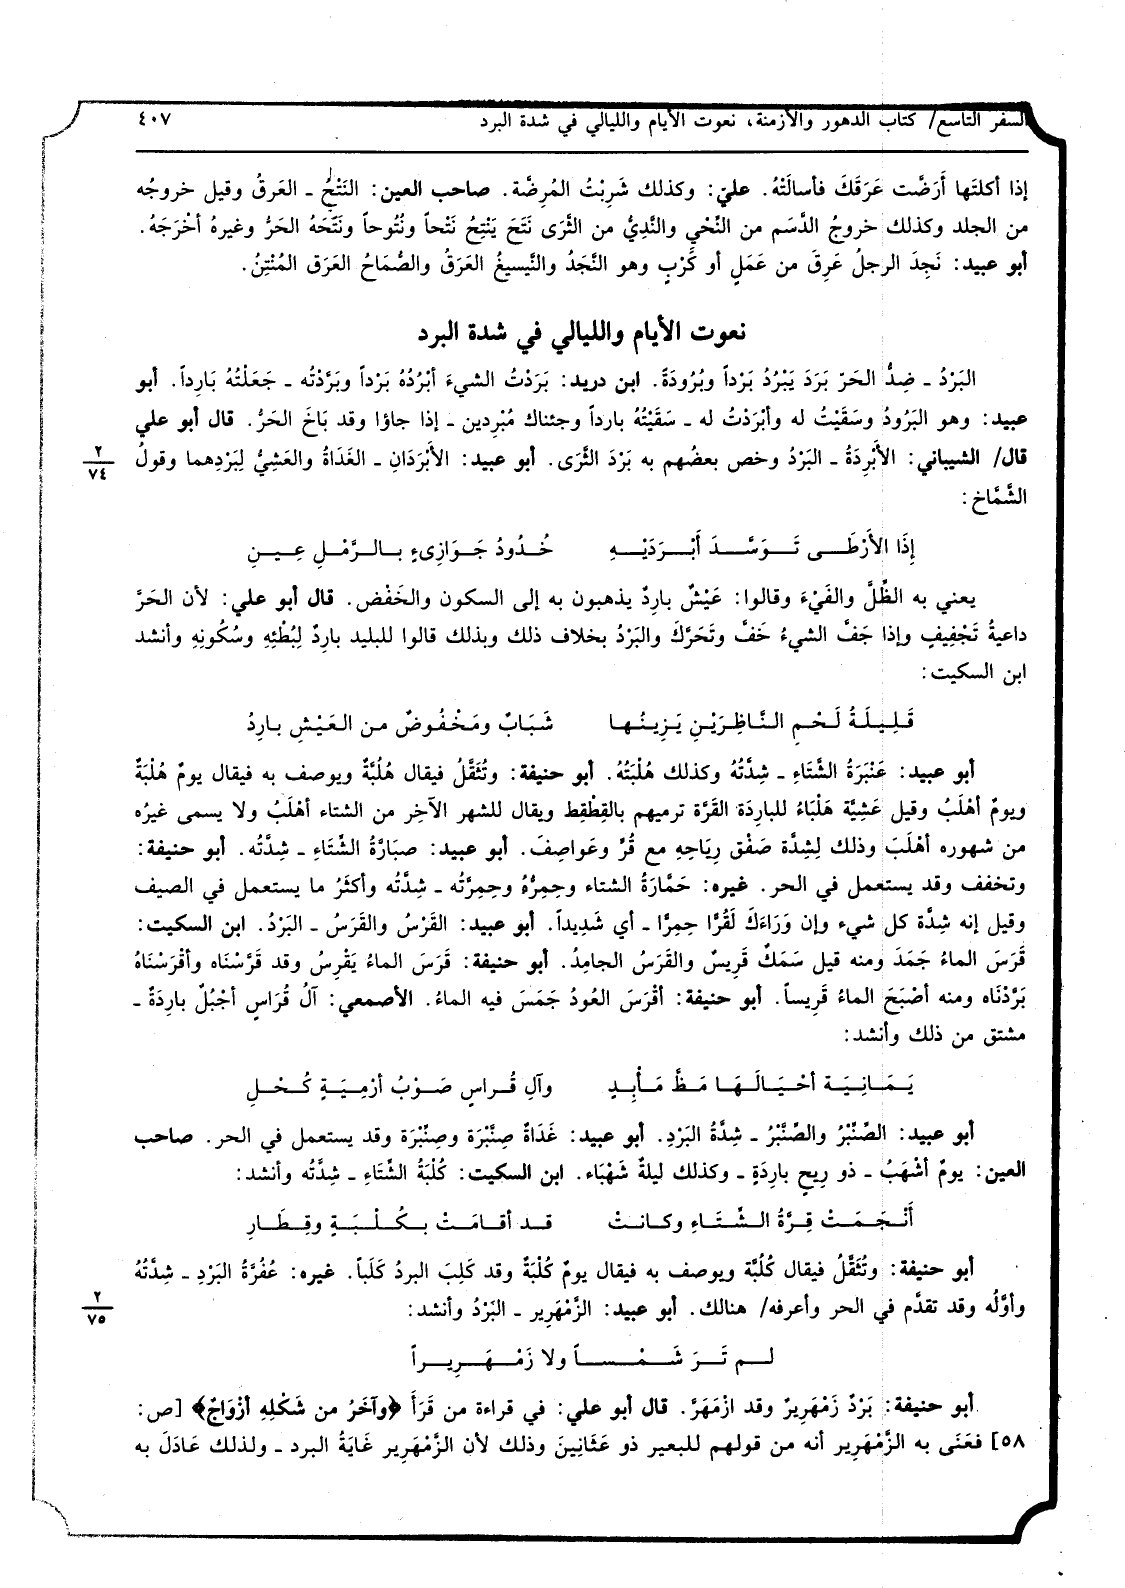 السفر التاسع/ كتاب الدهور والأزمنة، نعوت الأيام والليالي في شدة البرد ٤٠٧
إذا أكلتَها أَرَضَّت عَرَقَكَ فأسالَتْهُ. عليّ: وكذلك شَرِبْتُ المُرِضَّة. صاحب العين: النَتْحُ ـ العَرقُ وقيل خروجُه
من الجلد وكذلك خروجُ الدَّسَم من النِّحْي والنَّدِيُّ من الثَّرَى نَتَحَ يَنْتِحُ نَتْحاً ونُتُوحاً ونَتَّحَهُ الحَرُّ وغيرهُ أخْرَجَهُ.
أبو عبيد: نَجِدَ الرجلُ عَرِقَ من عَمَلٍ أو كَرْبٍ وهو النَّجَدُ والنَّيسيغُ العَرَقُ والصُّمَاحُ العَرَق المُنْتِنُ.
نعوت الأيام والليالي في شدة البرد
البَرْدُ ـ ضِدُّ الحَرّ بَرَدَ يَبْرُدُ بَرْداً وبُرُودَةً. ابن دريد: بَرَدْتُ الشيءَ أَبْرُدُهُ بَرْداً وبَرَّدْتُه ـ جَعَلْتُهُ بَارِداً. أبو
عبيد: وهو البَرُودُ وسَقَيْتُ له وأبْرَدْتُ له ـ سَقَيْتُهُ بارداً وجئناك مُبْرِدين ـ إذا جاؤا وقد بَاخَ الحَرُّ. قال أبو علي
قال/ الشيباني: الأَبْرِدَةُ ـ البَرْدُ وخص بعضُهم به بَرْدَ الثَّرَى. أبو عبيد: الأَبْرَدَانِ ـ الغَدَاةُ والعَشِيُّ لِبَرْدِهما وقولُ
٢
٧٤
الشَّمَّاخ:
إِذَا الأَرْطَـى تَـوَسَّـدَ أَبْـرَدَيْـهِ خُـدُودُ جَـوَازِىءٍ بـالـرَّمْـلِ عِـيـنِ
يعني به الظِّلَّ والفَيْءَ وقالوا: عَيْشٌ بارِدٌ يذهبون به إلى السكون والخَفْض. قال أبو علي: لأن الحَرَّ
داعيةُ تَجْفِيفٍ وإذا جَفَّ الشيءُ خَفَّ وتَحَرَّكَ والبَرْدُ بخلاف ذلك وبذلك قالوا للبليد بارِدٌ لِبُطْئِهِ وسُكُونِهِ وأنشد
ابن السكيت:
قَـلِـيـلَـةُ لَـحْـمِ الـنَّـاظِـرَيْـنِ يَـزِيـنُـهـا شَـبَـابٌ ومَـخْـفُـوضٌ مـن الـعَـيْـشِ بـارِدُ
أبو عبيد: عَنْبَرَةُ الشِّتَاءِ ـ شِدَّتُهُ وكذلك هُلْبَتُهُ. أبو حنيفة: وتُثَقَّلُ فيقال هُلُبَّةٌ ويوصف به فيقال يومٌ هُلْبَةٌ
ويومٌ أهْلَبُ وقيل عَشِيَّة هَلْبَاءُ للبارِدَة القَرَّة ترميهم بالقِطْقِط ويقال للشهر الآخِر من الشتاء أهْلَبُ ولا يسمى غيرُه
من شهوره أهْلَبَ وذلك لِشِدَّة صَفْق رِيَاحِهِ مع قُرّ وعَواصِفَ. أبو عبيد: صبَارَّةُ الشِّتَاءِ ـ شِدَّتُه. أبو حنيفة:
وتخفف وقد يستعمل في الحر. غيره: حَمَّارَةُ الشتاء وحِمِرُّهُ وحِمِرَّتُه ـ شِدَّتُه وأكثَرُ ما يستعمل في الصيف
وقيل إنه شِدَّة كل شيء وإن وَرَاءَكَ لَقُرًّا حِمِرًّا ـ أي شَدِيداً. أبو عبيد: القَرْسُ والقَرَسُ ـ البَرْدُ. ابن السكيت:
قَرَسَ الماءُ جَمَدَ ومنه قيل سَمَكٌ قَرِيسٌ والقَرَسُ الجامِدُ. أبو حنيفة: قَرَسَ الماءُ يَقْرِسُ وقد قَرَّسْنَاه وأقْرَسْنَاهُ
بَرَّدْنَاه ومنه أصْبَحَ الماءُ قَرِيساً. أبو حنيفة: أقْرَسَ العُودُ جَمَسَ فيه الماءُ. الأصمعي: آلُ قُرَاسٍ أجْبُلٌ بارِدَةٌ ـ
مشتق من ذلك وأنشد:
يَـمَـانِـيَـة أحْـيَـالَـهَـا مَـظَّ مَـأْبِـدٍ وآلِ قُـراسٍ صَـوْبُ أرْمِـيَـةٍ كُـحْـلِ
أبو عبيد: الصِّنْبُرُ والصِّنَّبْرُ ـ شِدَّةُ البَرْدِ. أبو عبيد: غَدَاةٌ صِنَّبْرَة وصِنِّبْرَة وقد يستعمل في الحر. صاحب
العين: يومٌ أشْهَبُ ـ ذو رِيحٍ بارِدَةٍ ـ وكذلك ليلةٌ شَهْبَاء. ابن السكيت: كُلْبَةُ الشِّتَاءِ ـ شِدَّتُه وأنشد:
أَنْـجَـمَـتْ قِـرَّةُ الـشِّـتَـاءِ وكـانـتْ قـد أقـامَـتْ بِـكُـلْـبَـةٍ وقِـطَـارِ
أبو حنيفة: وتُثَقَّلُ فيقال كُلُبَّة ويوصف به فيقال يومٌ كُلْبَةٌ وقد كَلِبَ البردُ كَلَباً. غيره: عُفُرَّةُ البَرْدِ ـ شِدَّتُهُ
وأوَّلُه وقد تقدَّم في الحر وأعرفه/ هنالك. أبو عبيد: الزَّمْهَرِير ـ البَرْدُ وأنشد:
٢
٧٥
لـم تَـرَ شَـمْـسـاً ولا زَمْـهَـرِيـراً
أبو حنيفة: بَرْدٌ زَمْهَرِيرٌ وقد ازْمَهَرَّ. قال أبو علي: في قراءة من قَرَأَ ﴿وآخَرُ من شَكْلِهِ أزْوَاجٌ﴾ [ص:
٥٨] فعَنَى به الزَّمْهَرِير أنه من قولهم للبعير ذو عَثَانِينَ وذلك لأن الزَّمْهَرِير غَايَةُ البرد ـ ولذلك عَادَلَ به